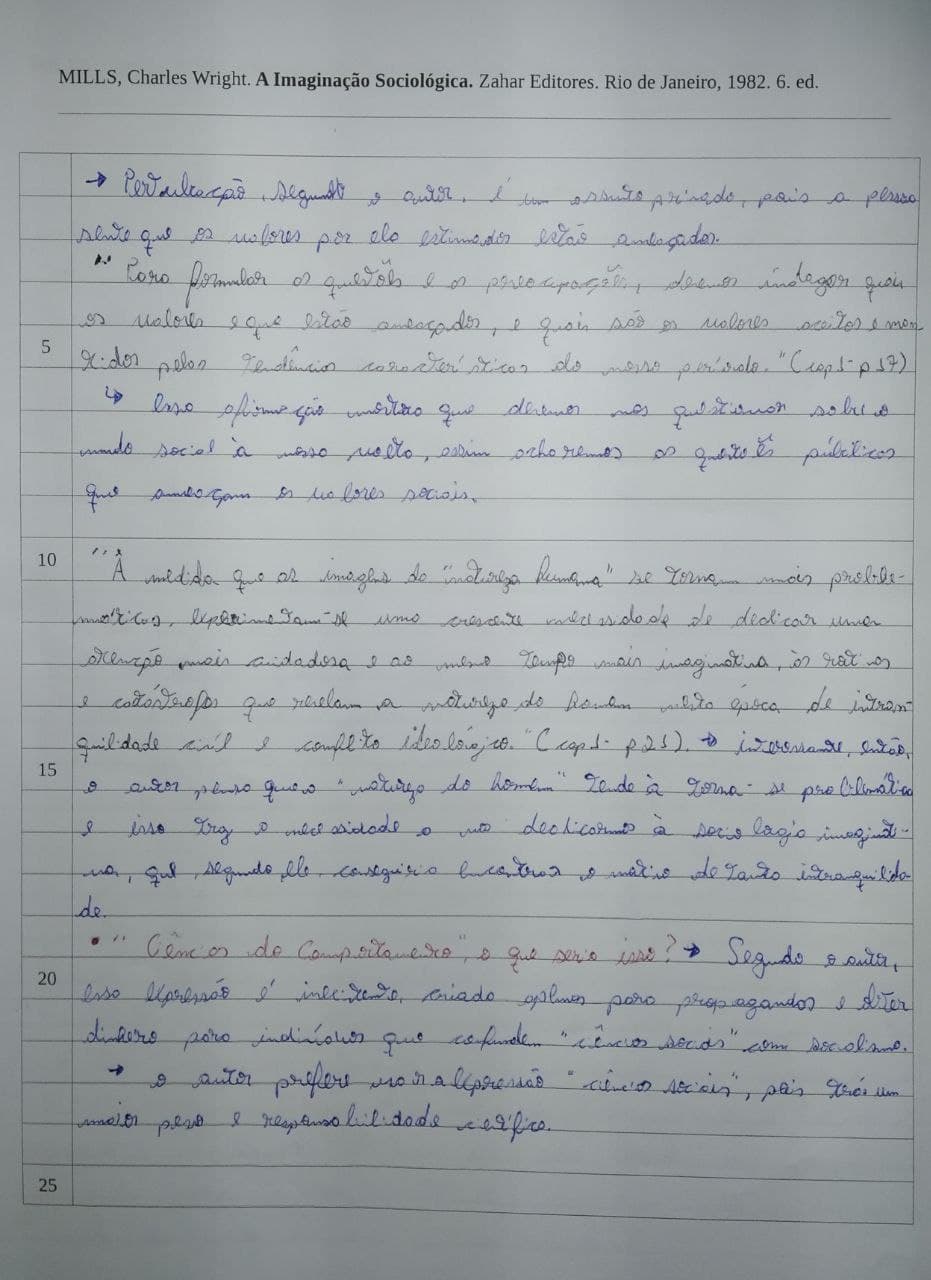 MILLS, Charles Wright. A Imaginação Sociológica. Zahar Editores. Rio de Janeiro, 1982. 6. ed.
→ Perturbação, segundo o autor, é um assunto privado, pois a pessoa
sente que os valores por ela estimados estão ameaçados.
" Para formular as questões e as preocupações, devemos indagar quais
os valores e que estão ameaçados, e quais são os valores aceitos e man
5 tidos pelas tendências características do nosso período." (cap 1- p 17)
↳ Essa afirmação mostra que devemos nos questionar sobre o
mundo social à nossa volta, assim acharemos as questões públicas
que ameaçam os valores sociais.
10 "À medida que as imagens da "natureza humana" se tornam mais proble-
máticas, experimentam-se uma crescente necessidade de dedicar uma
atenção mais cuidadosa e ao mesmo tempo mais imaginativa, às rotinas
e catástrofes que revelam a natureza do homem nesta época de intran-
quilidade civil e conflito ideológico." (cap 1- p 21). → interessante, então,
15 o autor pensa que a "natureza do homem" tende à torna-se problemática
e isso traz a necessidade a nos dedicarmos à sociologia imaginati-
va, que, segundo ele, conseguiria encontrar o motivo de tanta intranquilida-
de.
• " Ciências do Comportamento", o que seria isso? → Segundo o autor,
20 essa expressão é inexistente, criada apenas para propagandas e obter
dinheiro para indivíduos que confundem "ciências sociais" com socialismo.
→ o autor prefere usar a expressão "ciências sociais", pois trás um
maior peso e responsabilidade científica.
25